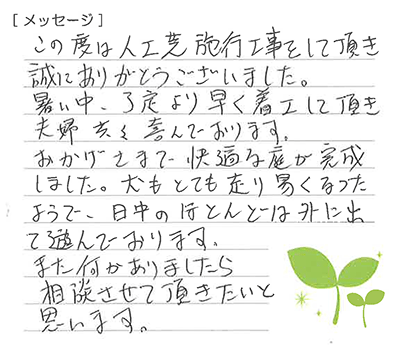 [メッセージ]
この度は人工芝施行工事をして頂き
誠にありがとうございました。
暑い中、予定より早く着工して頂き
夫婦共々喜んでおります。
おかげさまで快適な庭が完成
しました。犬もとても走り易くなった
ようで、日中のほとんどは外に出
て遊んでおります。
また何かありましたら
相談させて頂きたいと
思います。